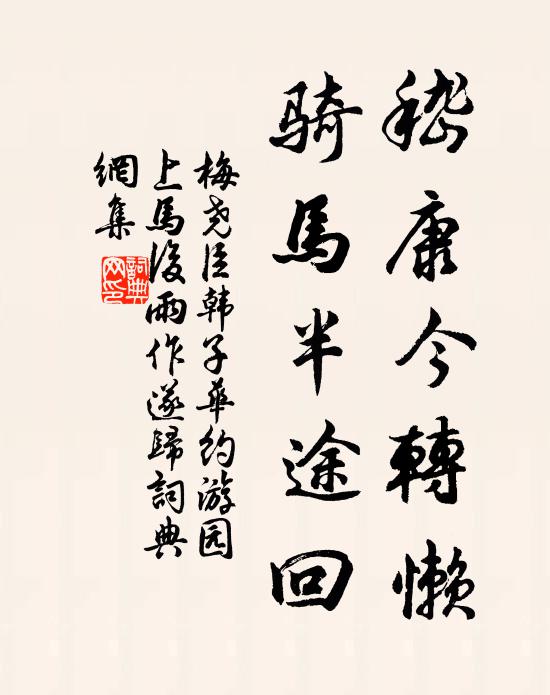 嵇康今轉懶
騎馬半途回
梅尧臣韩子華约游园
上馬後雨作遂歸詞典
網集
詞典網印